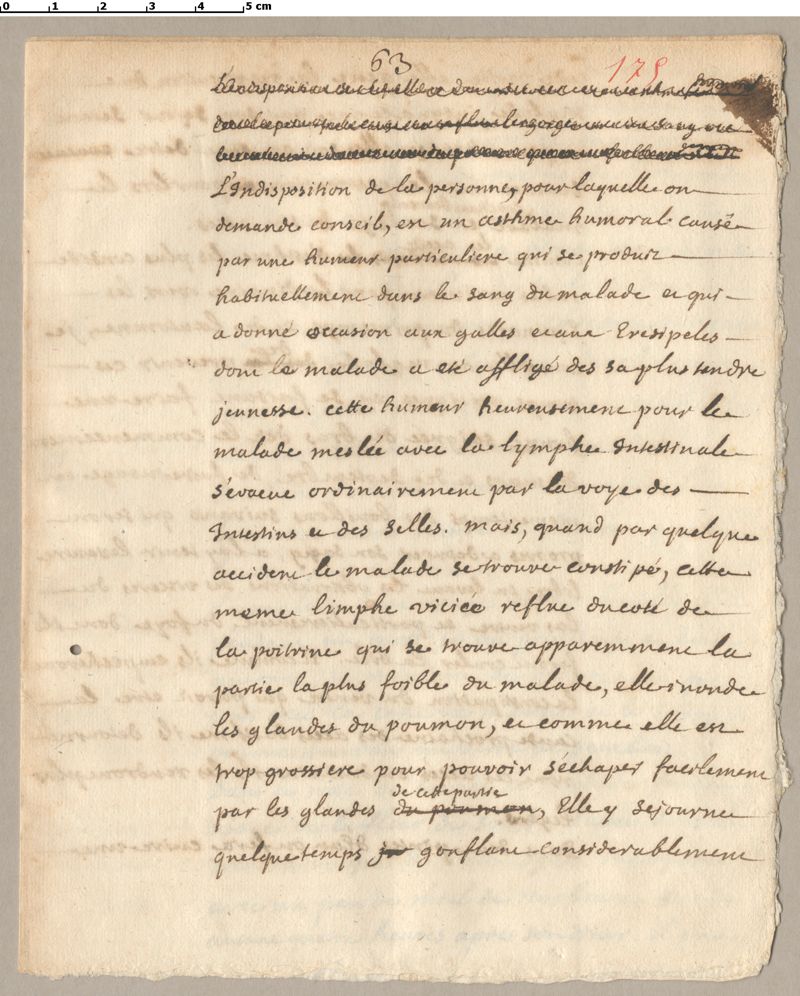 0 1 2 3 4 5 cm
63
175
L'Indisposition de la personne, pour laquelle on
demande conseil, est un asthme humoral causé
par une humeur particuliere qui se produit
habituellement dans le sang du malade et qui
a donné occasion aux galles et aux Eresipeles
dont le malade a eté affligé des sa plus tendre
jeunesse. cette humeur heureusement pour le
malade meslée avec la lymphe Intestinale
s'évacue ordinairement par la voye des
Intestins et des selles. mais, quand par quelque
accident le malade se trouve constipé, cette
meme limphe viciée reflue du coté de
la poitrine qui se trouve apparemment la
partie la plus foible du malade, elle inonde
les glandes du poumon, et comme elle est
trop grossiere pour pouvoir s'échaper facilement
de cette partie
par les glandes du poumon, Elle y sejourne
quelque temps gonflant considerablement